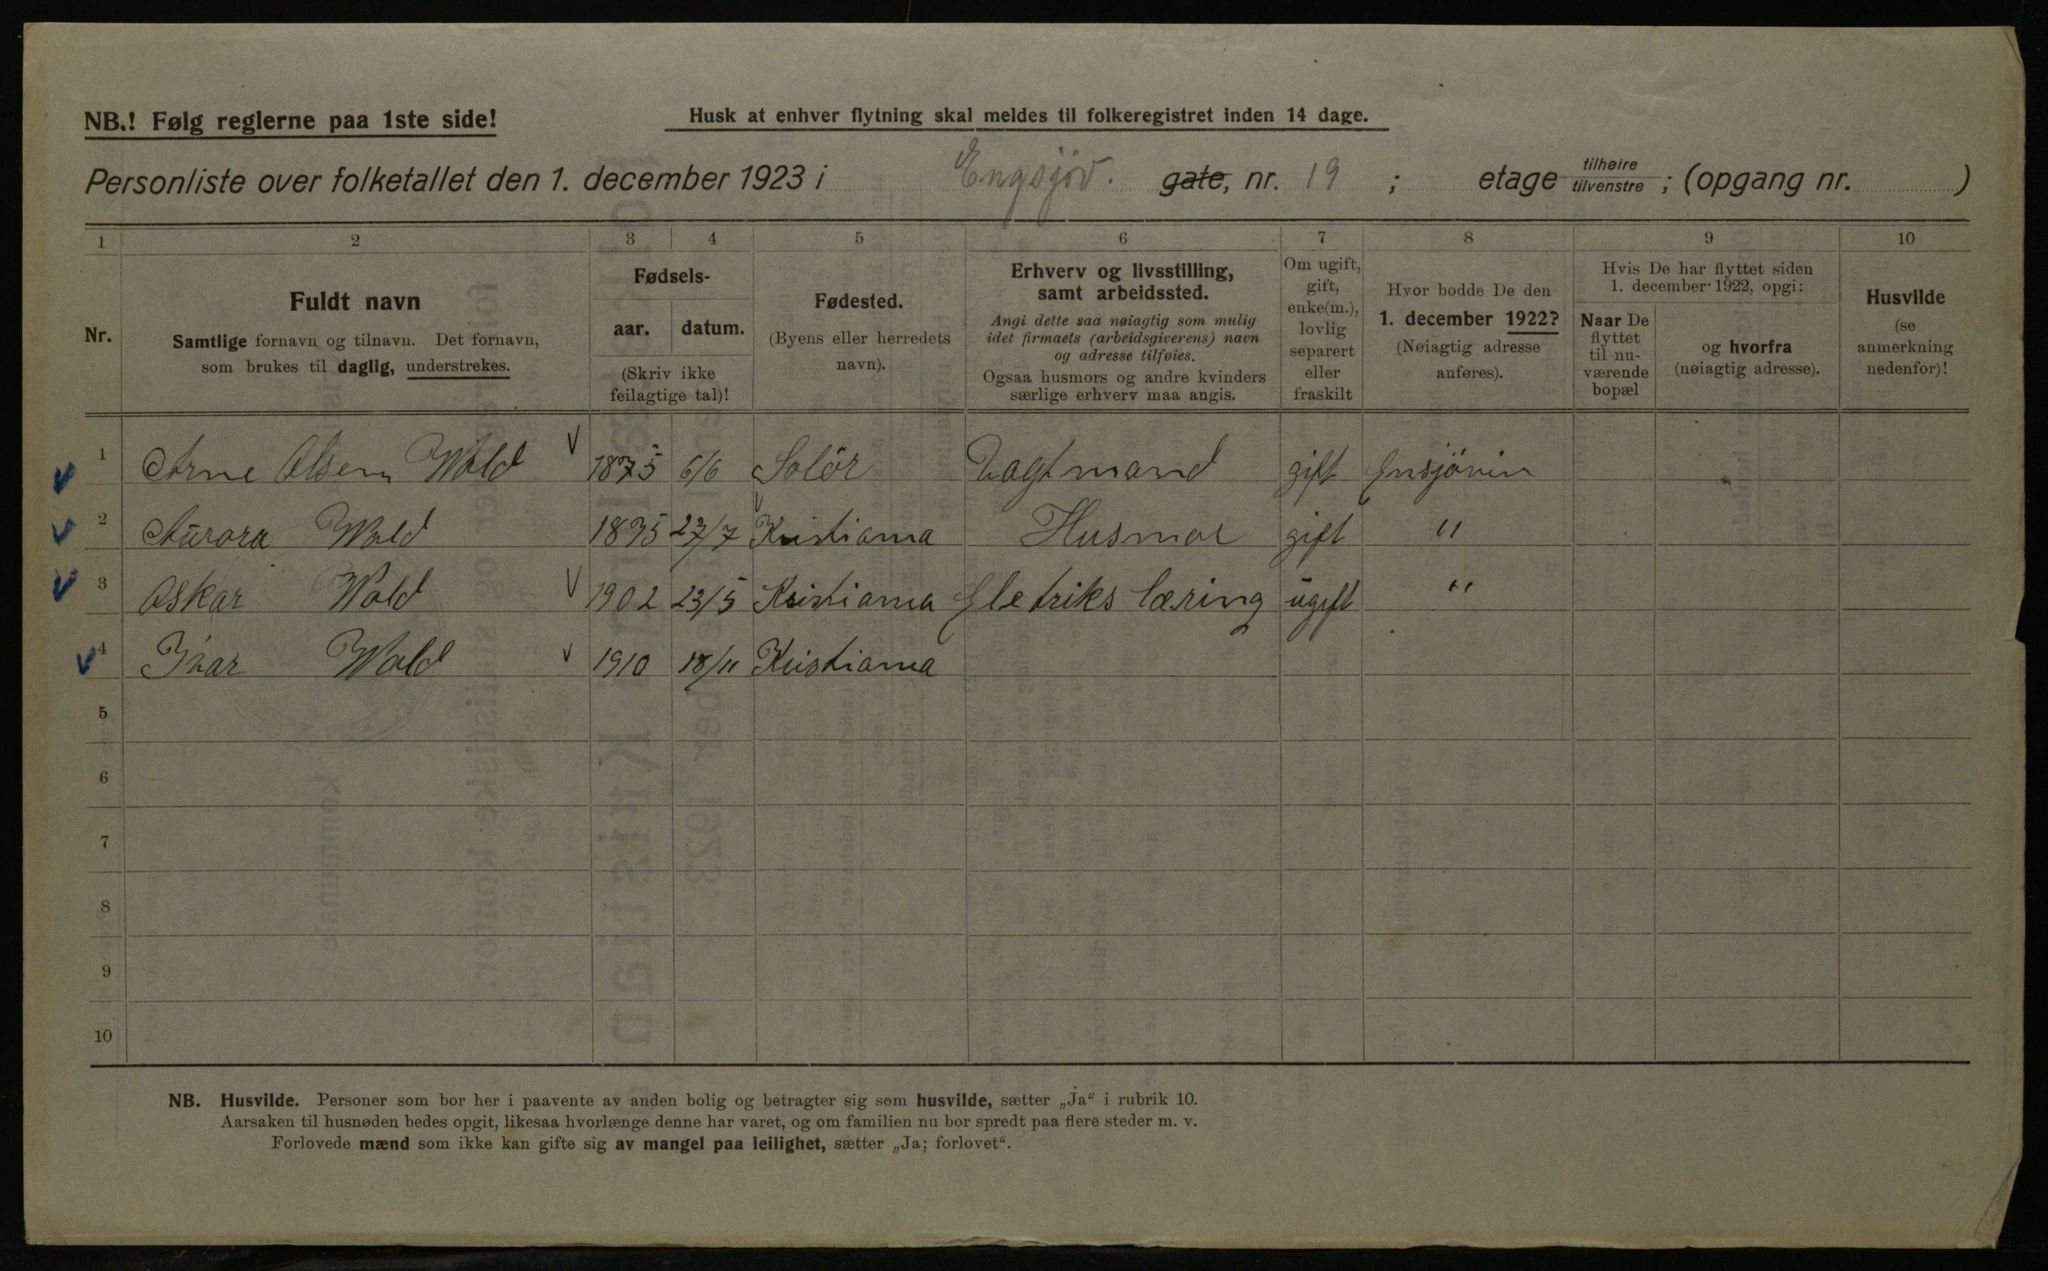 NB.! Følg reglerne paa 1ste side!
Husk at enhver flytning skal meldes til folkeregistret inden 14 dage.
Personliste over folketallet den 1. december 1923 i Engsjøv. gate, nr. 19 ; etage tilhøire tilvenstre ; (opgang nr. )
1 2 3 4 5 6 7 8 9 10
Nr.
Fuldt navn
Samtlige fornavn og tilnavn. Det fornavn,
som brukes til daglig, understrekes.
Fødsels-
aar. datum.
(Skriv ikke
feilagtige tal)!
Fødested.
(Byens eller herredets
navn).
Erhverv og livsstilling,
samt arbeidssted.
Angi dette saa nøiagtig som mulig
idet firmaets (arbeidsgiverens) navn
og adresse tilføies.
Ogsaa husmors og andre kvinders
særlige erhverv maa angis.
Om ugift,
gift,
enke(m.),
lovlig
separert
eller
fraskilt
Hvor bodde De den
1. december 1922?
(Nøiagtig adresse
anføres).
Hvis De har flyttet siden
1. december 1922, opgi:
Naar De
flyttet
til nu-
værende
bopæl
og hvorfra
(nøiagtig adresse).
Husvilde
(se
anmerkning
nedenfor)!
1 Arne Olsen Wold 1875 6/6 Solör Vagtmand gift Ensjövin
2 Aurora Wold 1875 27/7 Kristiania Husmor gift "
3 Oskar Wold 1902 23/5 Kristiania Eletriks læring ugift "
4 Ivar Wold 1910 18/11 Kristiania
5
6
7
8
9
10
NB. Husvilde. Personer som bor her i paavente av anden bolig og betragter sig som husvilde, sætter „Ja“ i rubrik 10.
Aarsaken til husnøden bedes opgit, likesaa hvorlænge denne har varet, og om familien nu bor spredt paa flere steder m. v.
Forlovede mænd som ikke kan gifte sig av mangel paa leilighet, sætter „Ja; forlovet“.